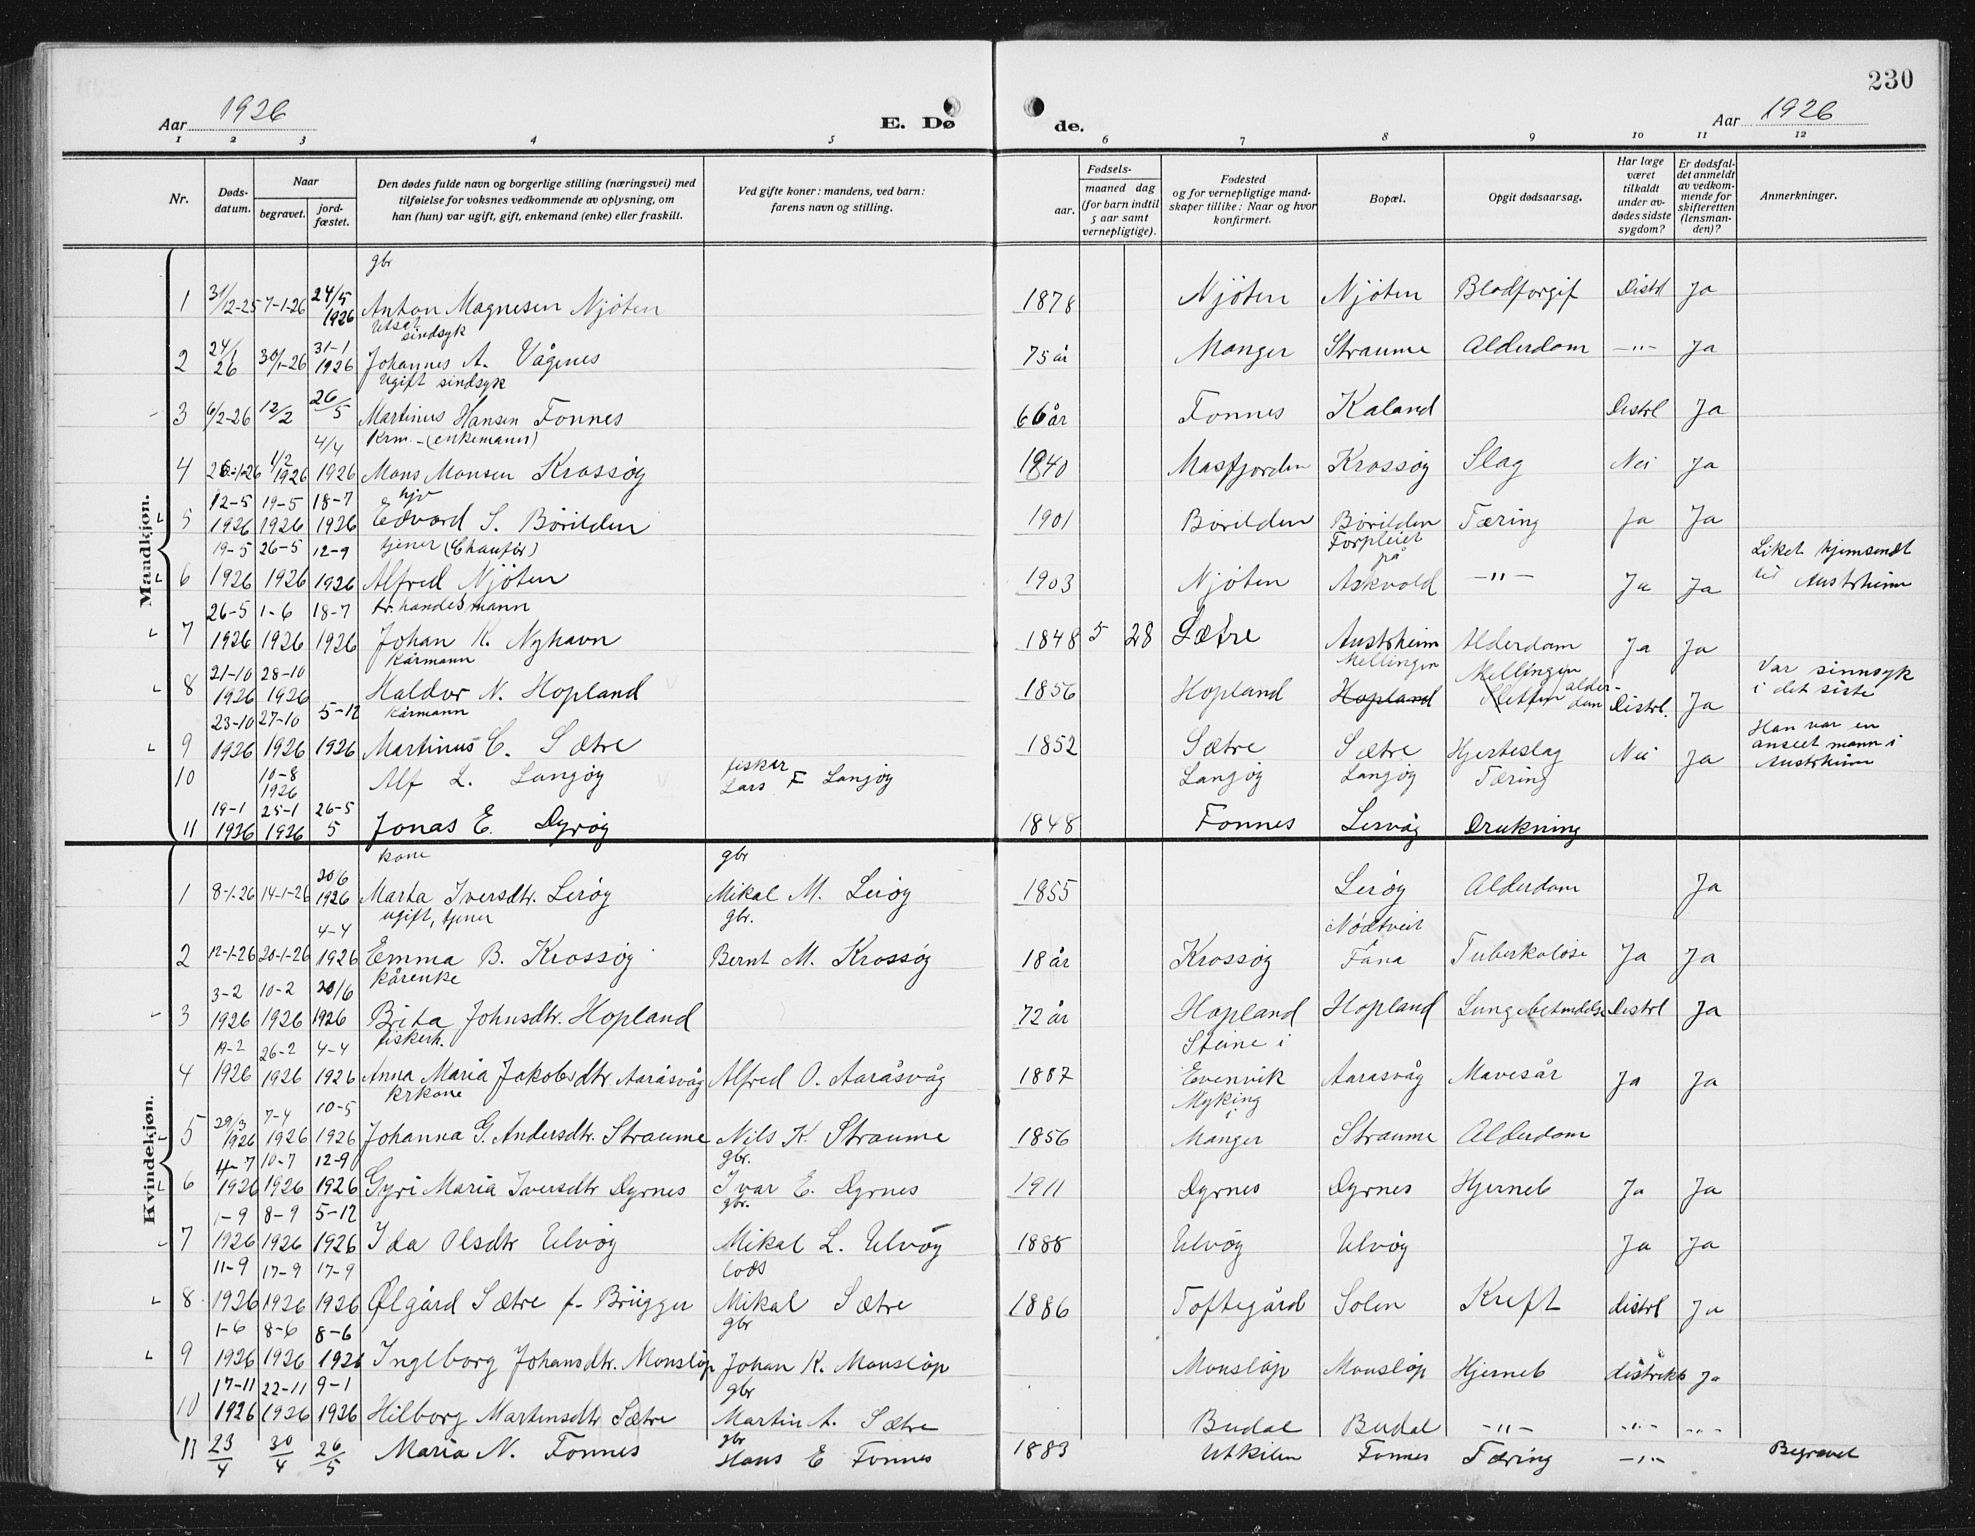 230
Aar 1926
E. Dø de.
Aar 1926
1 2 3 4 5 6 7 8 9 10 11 12
Nr.
Døds-
datum.
Naar
begravet.
jord-
fæstet.
Den dødes fulde navn og borgerlige stilling (næringsvei) med
tilføielse for voksnes vedkommende av oplysning, om
han (hun) var ugift, gift, enkemand (enke) eller fraskilt.
Ved gifte koner: mandens, ved barn:
farens navn og stilling.
Fødsels-
aar.
maaned dag
(for barn indtil
5 aar samt
vernepligtige).
Fødested
og for vernepligtige mand-
skaper tillike: Naar og hvor
konfirmert.
Bopæl.
Opgit dødsaarsag.
Har læge
været
tilkaldt
under av-
dødes sidste
sygdom?
Er dødsfal-
det anmeldt
av vedkom-
mende for
skifteretten
(lensman-
den)?
Anmerkninger.
Mandkjøn.
gbr
1 31/12-25 7-1-26 24/5 1926 Anton Magnesen Njöten 1878 Njöten Njöten Blodforgif Distrl Ja
sindsyk
2 24/1 26 30/1-26 31-1 1926 Johannes A. Vågenes 75 år Manger Straume Alderdom -"- Ja
Ugift sindsyk
3 6/2-26 12/2 26/5 Martinus Hansen Fonnes 66 år Fonnes Kaland Distrl Ja
Krm. - (enkemann)
4 26-1-26 1/2 1926 4/4 1926 Mons Monsen Krossøy 1840 Masfjorden Krossøy Slag Nei Ja
5 12-5 1926 19-5 1926 18-7 1926 Edvard S. Börilden 1901 Börilden Börilden Tæring Ja Ja
tjener (Chaufør)
6 19-5 1926 26-5 1926 12-9 1926 Alfred Njöten 1903 Njöten Forpleiet på Askvold -"- Ja Ja Liket hjemsendt til Austrheim
fr. handelsmann
7 26-5 1926 1-6 1926 18-7 1926 Johan K. Nyhavn 1848 5 28 Sætre Austrheim Alderdom Ja Ja
Kårmann
8 21-10 1926 28-10 1926 Haldor N. Hopland 1856 Hopland Mellingen Hopland Mellingen Sletten alder-dom Distrl. Ja Var sinnsyk i det siste
Kårmann
9 23-10 1926 27-10 1926 5-12 1926 Martinus C. Sætre 1852 Sætre Sætre Hjerteslag Nei Ja Han var en anseet mann i Austrheim
10 10-8 1926 Alf L. Langøy fisker Lars F Langøy Langøy Langøy Tæring
11 19-1 1926 25-1 1926 26-5 5 Jonas E. Dyrøy 1848 Fonnes Lervåg Drukning
Kvindekjøn.
kone gbr
1 8-1-26 14-1-26 20/6 1926 Marta Iversdtr. Lerøy Mikal M. Lerøy 1855 Lerøy Alderdom Ja
ugift, tjener gbr.
2 12-1-26 20-1-26 4-4 1926 Emma B. Krossøy Bernt M. Krossøy 18 år Krossøy Nödtveit Fana Tuberkulose Ja Ja
Kårenke
3 3-2 1926 10-2 1926 20/6 1926 Brita Johnsdtr. Hopland 72 år Hopland Hopland Lungebetendelse Distrl Ja
fiskerh.
4 19-2 1926 26-2 1926 4-4 1926 Anna Maria Jakobsdtr. Aaråsvåg Alfred O. Aaråsvåg 1887 Steine i Evenvik Aarasvåg Mavesår Ja Ja
krkone
5 29/3 1926 7-4 1926 10-5 1926 Johanna G. Andersdtr. Straume Nils K. Straume 1856 Myking i Manger Straume Alderdom
gbr.
6 4-7 1926 10-7 1926 12-9 1926 Gyri Maria Iversdtr Dyrnes Ivar E. Dyrnes 1911 Dyrnes Dyrnes Hjerneb Ja Ja
gbr.
7 1-9 1926 8-9 1926 5-12 1926 Ida Olsdtr Ulvøy Mikal L. Ulvøy 1888 Ulvøy Ulvøy Ja Ja
lods
8 11-9 1926 17-9 1926 17-9 1926 Ølgård Sætre f. Brügger Mikal Sætre 1886 Toftegård Solen Kreft distrl Ja
gbr
9 1-6 1926 8-6 1926 8-6 1926 Ingeborg Johansdtr. Monsløp Johan K. Monsløp Monsløp Monsløp Hjerneb distrikts Ja
gbr
10 17-11 1926 22-11 1926 9-1 1926 Hilborg Martinsdtr Sætre Martin A. Sætre Budal Budal -"- -"- -"-
gbr
11 23/4 30/4 26/5 Maria N. Fonnes Hans E Fonnes 1883 Utkilen Fonnes Tæring -"- Begravet